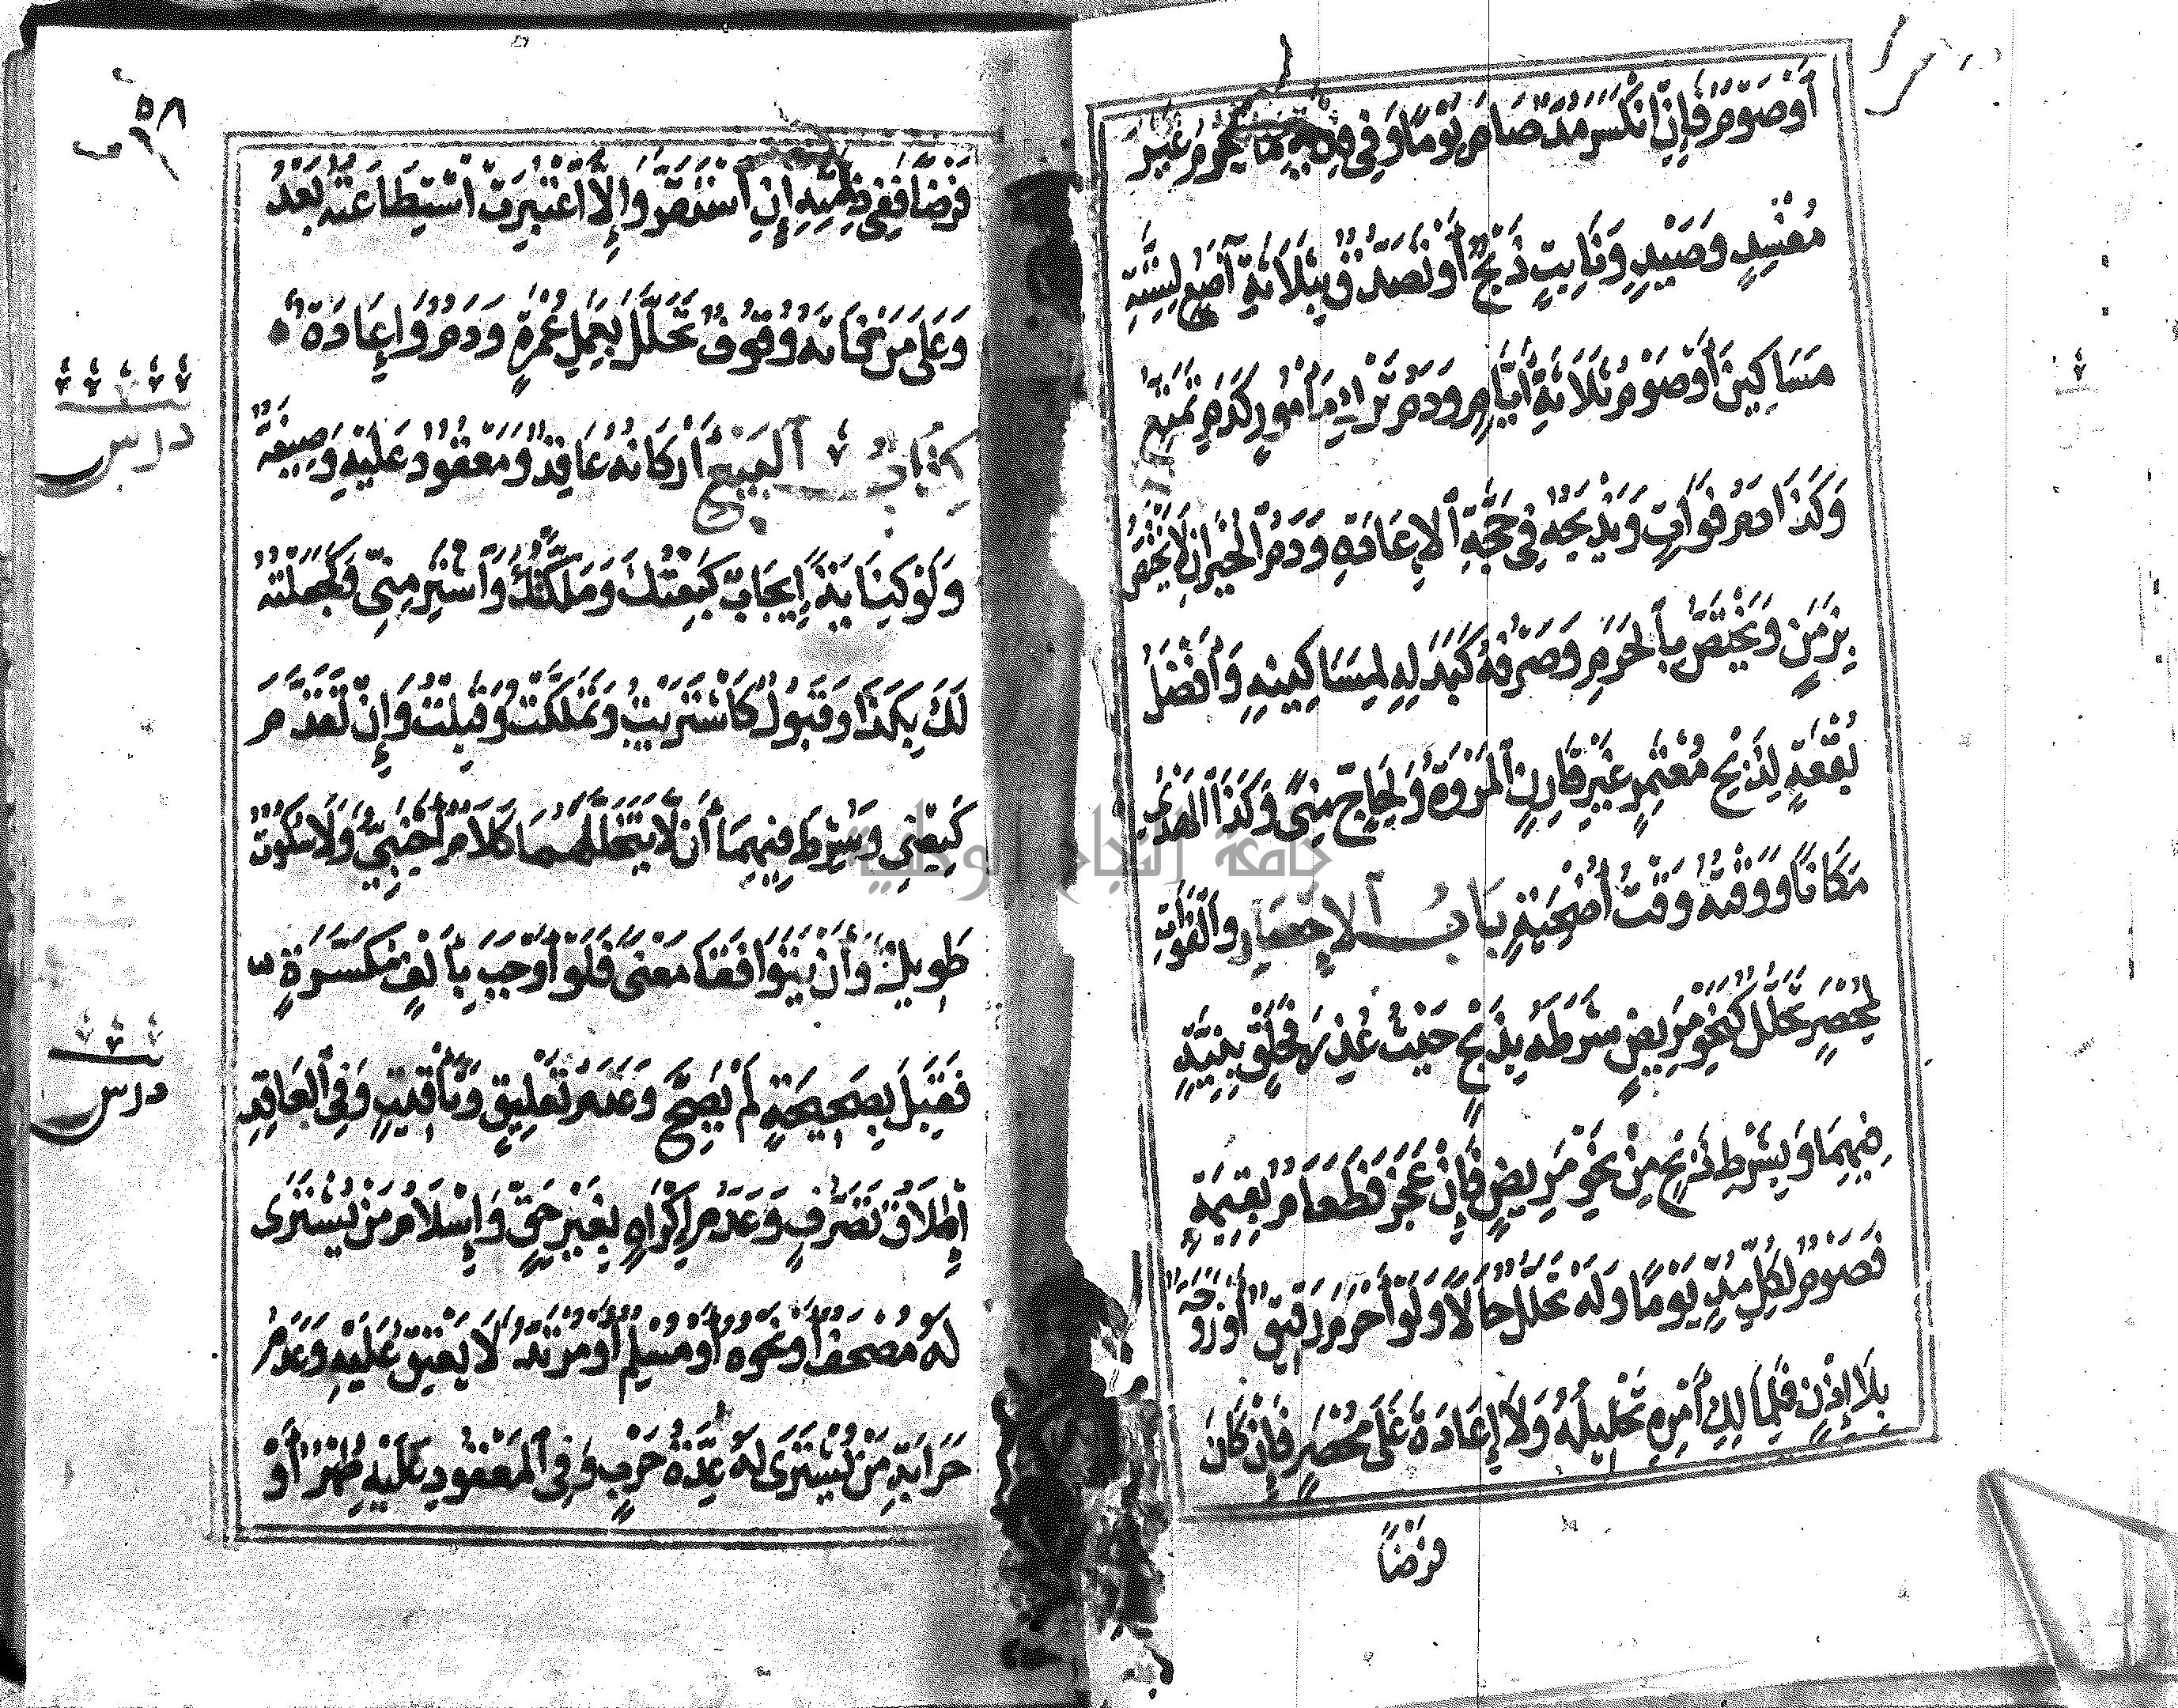 أَوْ صَوْمٌ فَإِنِ انْكَسَرَ مُدٌّ صَامَ يَوْمًا وَفِي فِدْيَةِ مَا يَحْرُمُ غَيْرَ
مُفْسِدٍ وَصَيْدٍ وَنَابِتٍ ذَبْحٌ أَوْ تَصَدُّقٌ بِثَلَاثَةِ آصُعٍ لِسِتَّةِ
مَسَاكِينَ أَوْ صَوْمُ ثَلَاثَةِ أَيَّامٍ وَدَمُ تَرْكِ مَأْمُورٍ كَدَمِ تَمَتُّعٍ
وَكَذَا دَمُ فَوَاتٍ وَيَذْبَحُهُ فِي حَجَّةِ الْإِعَادَةِ وَدَمُ الْجُبْرَانِ لَا يَخْتَصُّ
بِزَمَنٍ وَيَخْتَصُّ بِالْحَرَمِ وَصَرْفُهُ كَبَدَلِهِ لِمَسَاكِينِهِ وَأَفْضَلُ
بُقْعَةٍ لِذَبْحِ مُعْتَمِرٍ غَيْرِ قَارِنٍ الْمَرْوَةُ وَلِحَاجٍّ مِنًى وَكَذَا الْهَدْيُ
مَكَانًا وَوَقْتُهُ وَقْتُ أُضْحِيَةٍ بَابُ الْإِحْصَارِ وَالْفَوَاتِ
لِمُحْصَرٍ تَحَلُّلٌ كَنَحْوِ مَرِيضٍ شَرَطَهُ بِذَبْحٍ حَيْثُ عُذِرَ فَحَلْقٍ بِنِيَّتِهِ
فِيهِمَا وَبِشَرْطِ ذَبْحٍ مِنْ نَحْوِ مَرِيضٍ فَإِنْ عَجَزَ فَطَعَامٌ بِقِيمَةٍ
فَصَوْمٌ لِكُلِّ مُدٍّ يَوْمًا وَلَهُ تَحَلُّلٌ حَالًا وَلَوْ أَحْرَمَ رَقِيقٌ أَوْ زَوْجَةٌ
بِلَا إِذْنٍ فَلِمَالِكِ أَمْرِهِ تَحْلِيلُهُ وَلَا إِعَادَةَ عَلَى مُحْصَرٍ فَإِنْ كَانَ
فَرْضًا
٥٨
فَرْضًا فَفِي ذِمَّتِهِ إِنِ اسْتَقَرَّ وَإِلَّا اعْتُبِرَتْ اسْتِطَاعَتُهُ بَعْدُ
وَعَلَى مَنْ فَاتَهُ وُقُوفٌ تَحَلُّلٌ بِعَمَلِ عُمْرَةٍ وَدَمٌ وَإِعَادَةٌ
كِتَابُ الْبَيْعِ أَرْكَانُهُ عَاقِدٌ وَمَعْقُودٌ عَلَيْهِ وَصِيغَةٌ
وَلَوْ كِنَايَةً إِيجَابٌ كَبِعْتُكَ وَمَلَّكْتُكَ وَاشْتَرِ مِنِّي وَكَجَعَلْتُهُ
لَكَ بِكَذَا وَقَبُولٌ كَاشْتَرَيْتُ وَتَمَلَّكْتُ وَقَبِلْتُ وَإِنْ تَقَدَّمَ
كَبِعْنِي وَشُرِطَ فِيهِمَا أَنْ لَا يَتَخَلَّلَهُمَا كَلَامٌ أَجْنَبِيٌّ وَلَا سُكُوتٌ
طَوِيلٌ وَأَنْ يَتَوَافَقَا مَعْنًى فَلَوْ أَوْجَبَ بِأَلْفٍ مُكَسَّرَةٍ
فَقَبِلَ بِصَحِيحَةٍ لَمْ يَصِحَّ وَعَدَمُ تَعْلِيقٍ وَتَأْقِيتٍ وَفِي الْعَاقِدِ
إِطْلَاقُ تَصَرُّفٍ وَعَدَمُ إِكْرَاهٍ بِغَيْرِ حَقٍّ وَإِسْلَامُ مَنْ يُشْتَرَى
لَهُ مُصْحَفٌ أَوْ نَحْوُهُ أَوْ مُسْلِمٌ أَوْ مُرْتَدٌّ لَا يَعْتِقُ عَلَيْهِ وَعَدَمُ
حِرَابَةِ مَنْ يُشْتَرَى لَهُ عُدَّةُ حَرْبٍ وَفِي الْمَعْقُودِ عَلَيْهِ طُهْرٌ أَوْ
درس
درس
جامعة النجاح الوطنية